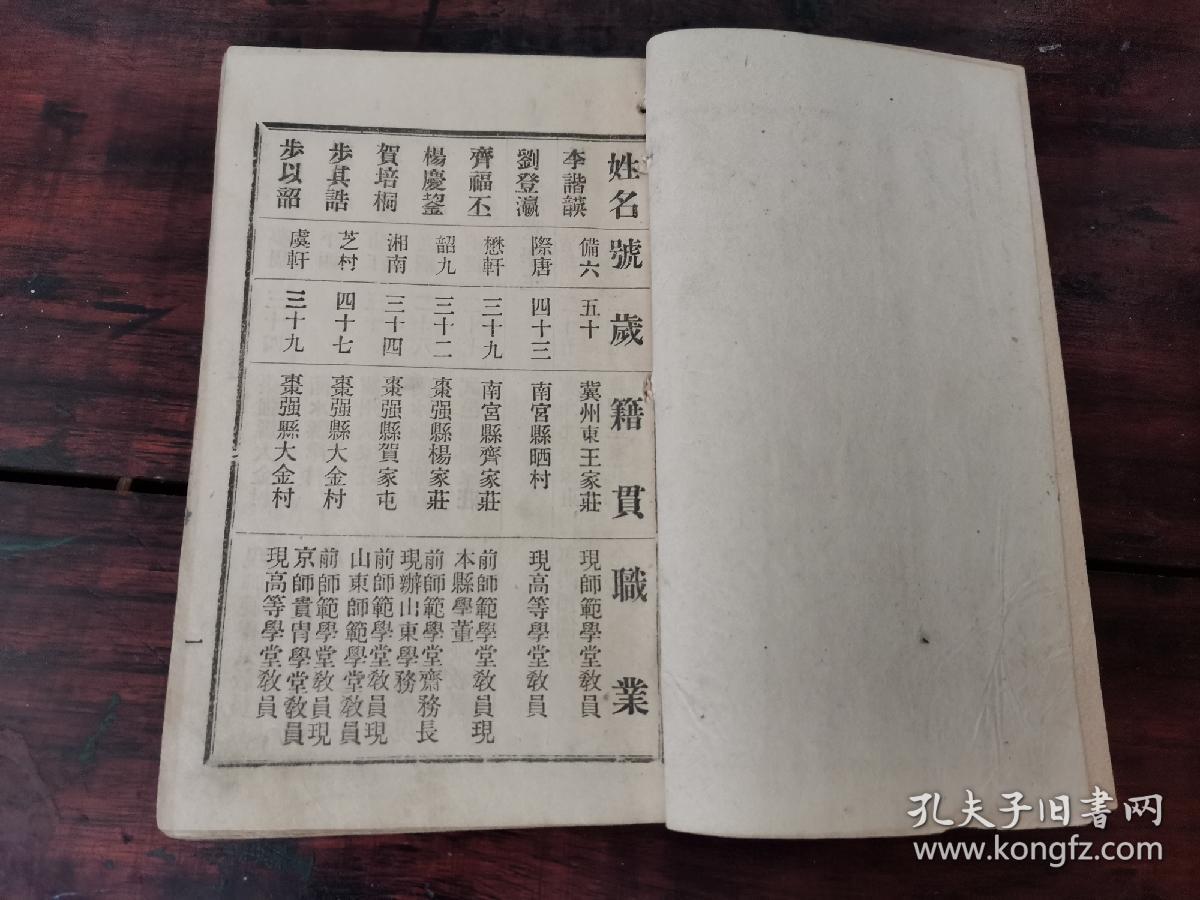 姓名 號 歲 籍貫 職業
李諧韺 備六 五十 冀州東王家莊 現師範學堂教員
劉登瀛 際唐 四十三 南宮縣晒村 現高等學堂教員
齊福丕 懋軒 三十九 南宮縣齊家莊 前師範學堂教員現本縣學董
楊慶鋆 韶九 三十二 棗强縣楊家莊 前師範學堂齋務長現辦山東學務
賀培桐 湘南 三十四 棗强縣賀家屯 前師範學堂教員現山東師範學堂教員
步其誥 芝村 四十七 棗强縣大金村 前師範學堂教員現京師貴胄學堂教員
步以韶 虞軒 三十九 棗强縣大金村 現高等學堂教員
一
孔夫子旧书网
www.kongfz.com